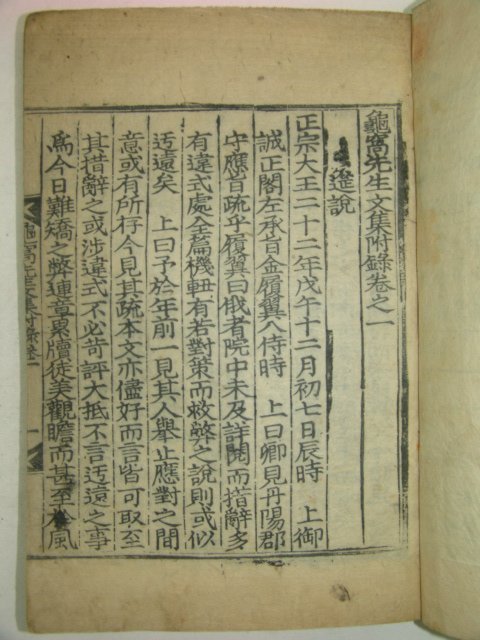 龜窩先生文集附錄卷之一
筵說
正宗大王二十二年戊午十二月初七日辰時　上御
誠正閣左承旨金履翼入侍時　上曰卿見丹陽郡
守應旨疏乎履翼曰俄者院中未及詳閱而措辭多
有違式處全篇機軸有若對策而救弊之說則或似
迃遠矣　上曰予於年前一見其人擧止應對之間
意或有所存今見其疏本文亦儘好而言皆可取至
其措辭之或涉違式不必苛評大抵不言迃遠之事
爲今日難矯之弊連章累牘徒美觀瞻而甚至於風
龜窩先生文集附錄卷一　一